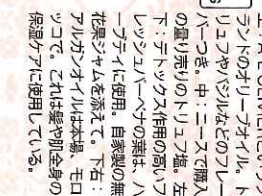 上：A L'OLIVIERという
ランドのオリーブオイル。ト
リュフやバジルなどのフレー
バーつき。中：ニースで購入
の量り売りのトリュフ塩。左
下：デトックス作用の高いフ
レッシュバーベナの葉は、ハ
ーブティに使用。自家製の無
花果ジャムを添えて。下右：
アルガンオイルは本場、モロ
ッコで。これは髪や肌全身の
保湿ケアに使用している。